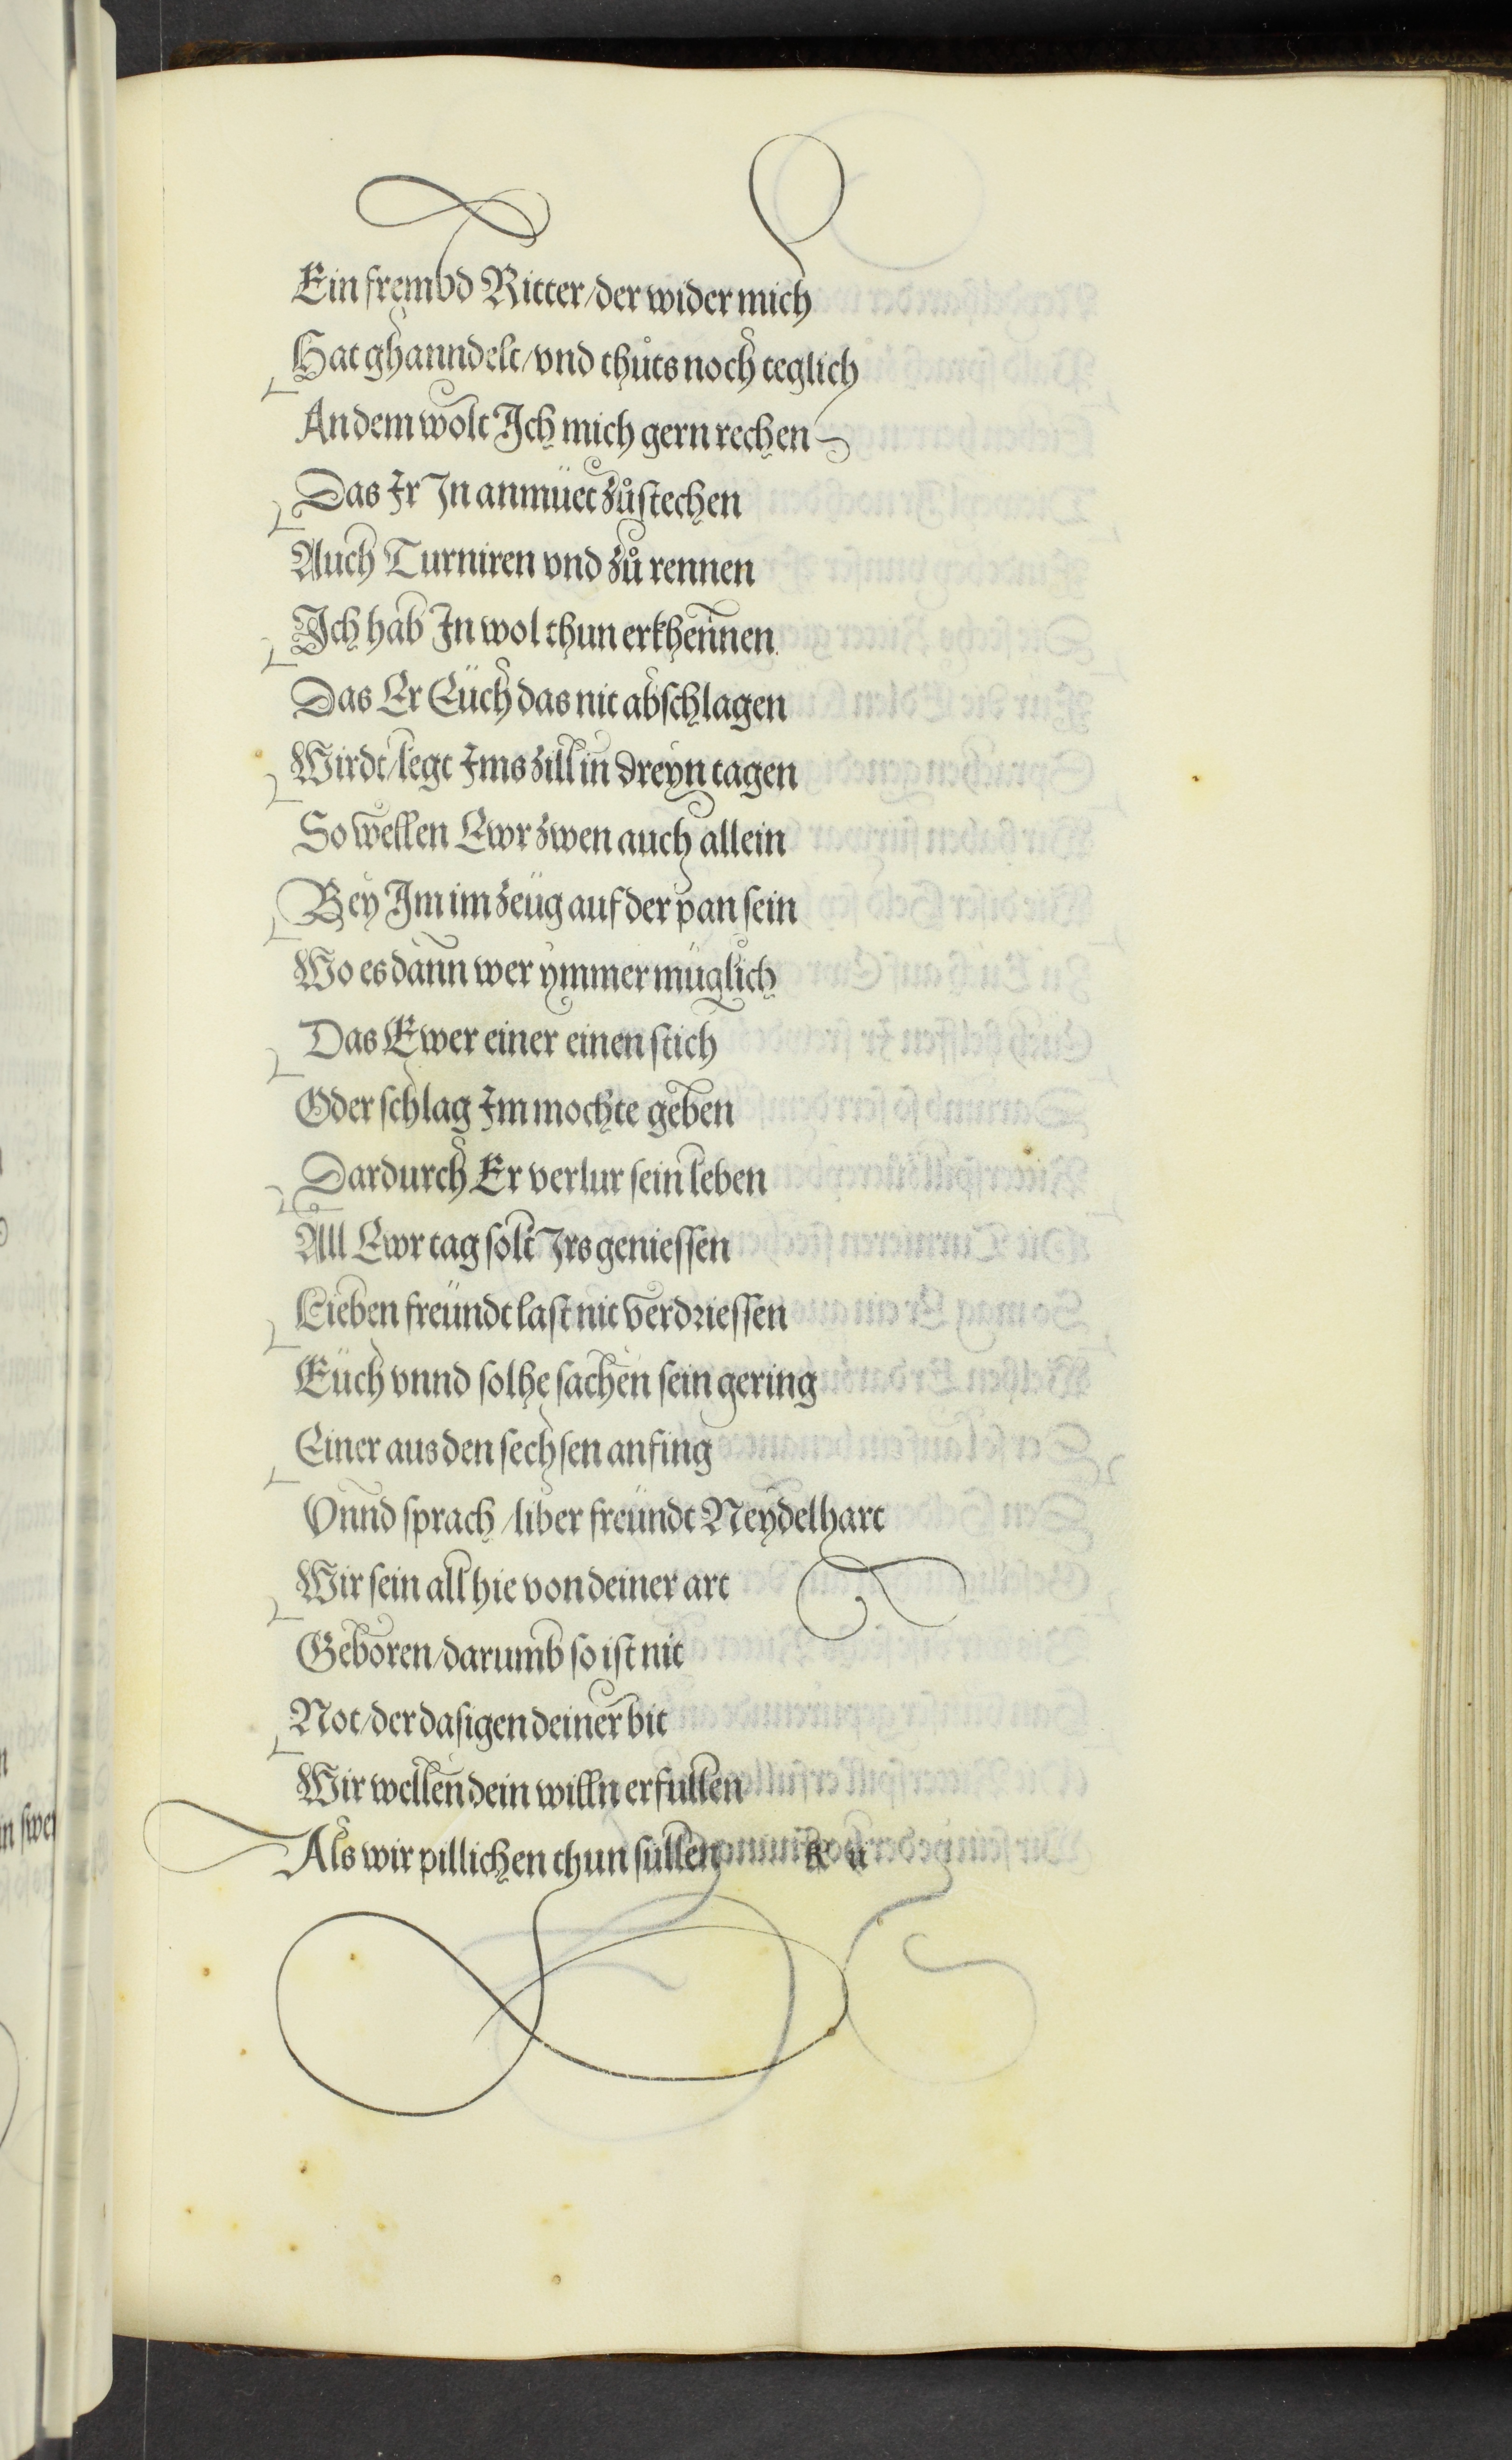 Ein frembd Ritter/der wider mich
Hat ghanndelt/vnd thůts noch teglich
An dem wolt Ich mich gern rechen
Das Ir In anmüet zůstechen
Auch Turniren vnd zů rennen
Ich hab In wol thun erkhennen
Das Er Eüch das nit abschlagen
Wirdt/legt Ims zill in dreyn tagen
So wellen Ewr zwen auch allein
Bey Im im zeüg auf der pan sein
Wo es dann wer ymmer müglich
Das Ewer einer einen stich
Oder schlag Im mochte geben
Dardurch Er verlur sein leben
All Ewr tag solt Irs geniessen
Lieben freündt last nit verdriessen
Eüch vnnd solhe sachen sein gering
Einer aus den sechsen anfing
Vnnd sprach/liber freündt Neydelhart
Wir sein all hie von deiner art
Geboren/darumb so ist nit
Not/der dasigen deiner bit
Wir wellen dein willn erfullen
Als wir pillichen thun sullen K ii